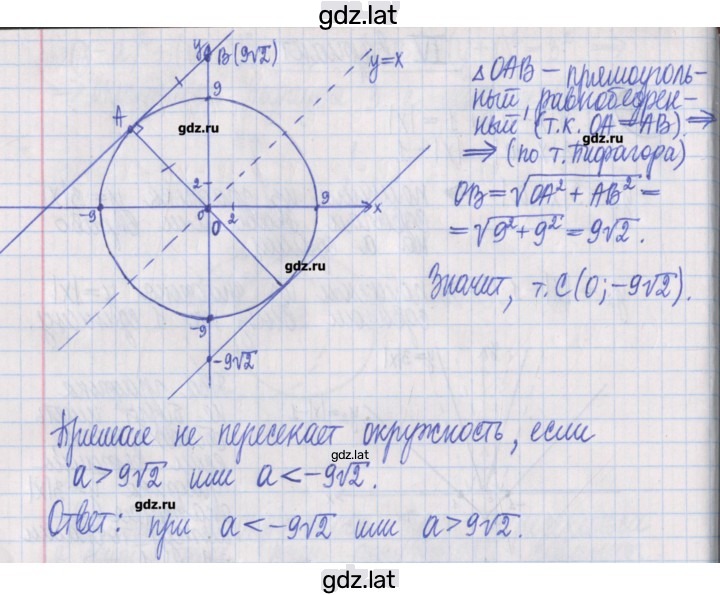 gdz.lat
y
B(9√2)
y=x
9
A
gdz.ru
2
-9
0
O
2
9
x
gdz.ru
-9
-9√2
△OAB – прямоуголь-
ный, равнобедрен-
ный (т.к. OA=AB) ⇒
gdz.ru
⇒ (по т. Пифагора)
OB=√OA²+AB² =
=√9²+9² = 9√2.
Значит, т. C(0;-9√2).
Прямая не пересекает окружность, если
a>9√2 или a<-9√2.
gdz.ru
Ответ: при a<-9√2 или a>9√2.
gdz.lat